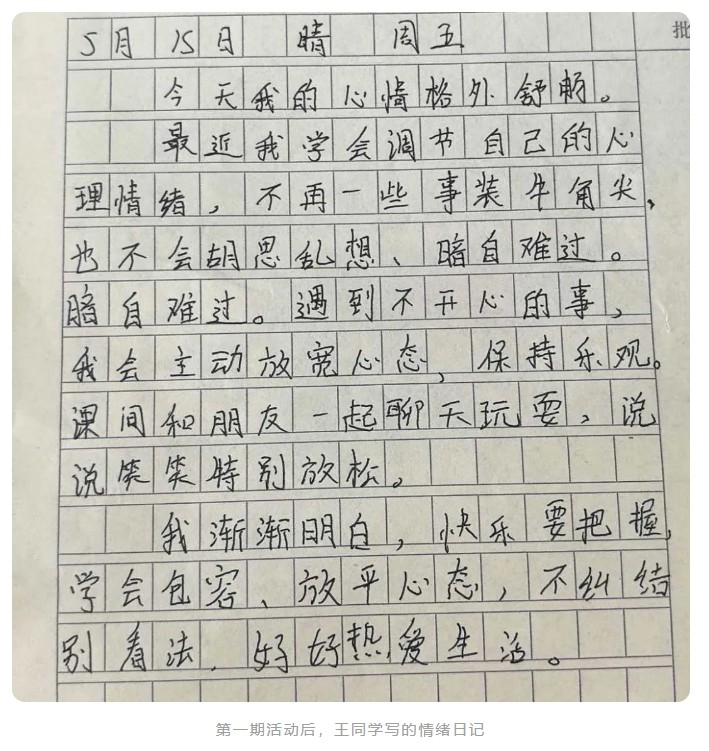 5月15日 晴 周五
批
今天我的心情格外舒畅。
最近我学会调节自己的心
理情绪，不再一些事装牛角尖，
也不会胡思乱想、暗自难过。
暗自难过。遇到不开心的事，
我会主动放宽心态，保持乐观。
课间和朋友一起聊天玩耍，说
说笑笑特别放松。
我渐渐明白，快乐要把握，
学会包容、放平心态，不纠结
别看法，好好热爱生活。
第一期活动后，王同学写的情绪日记